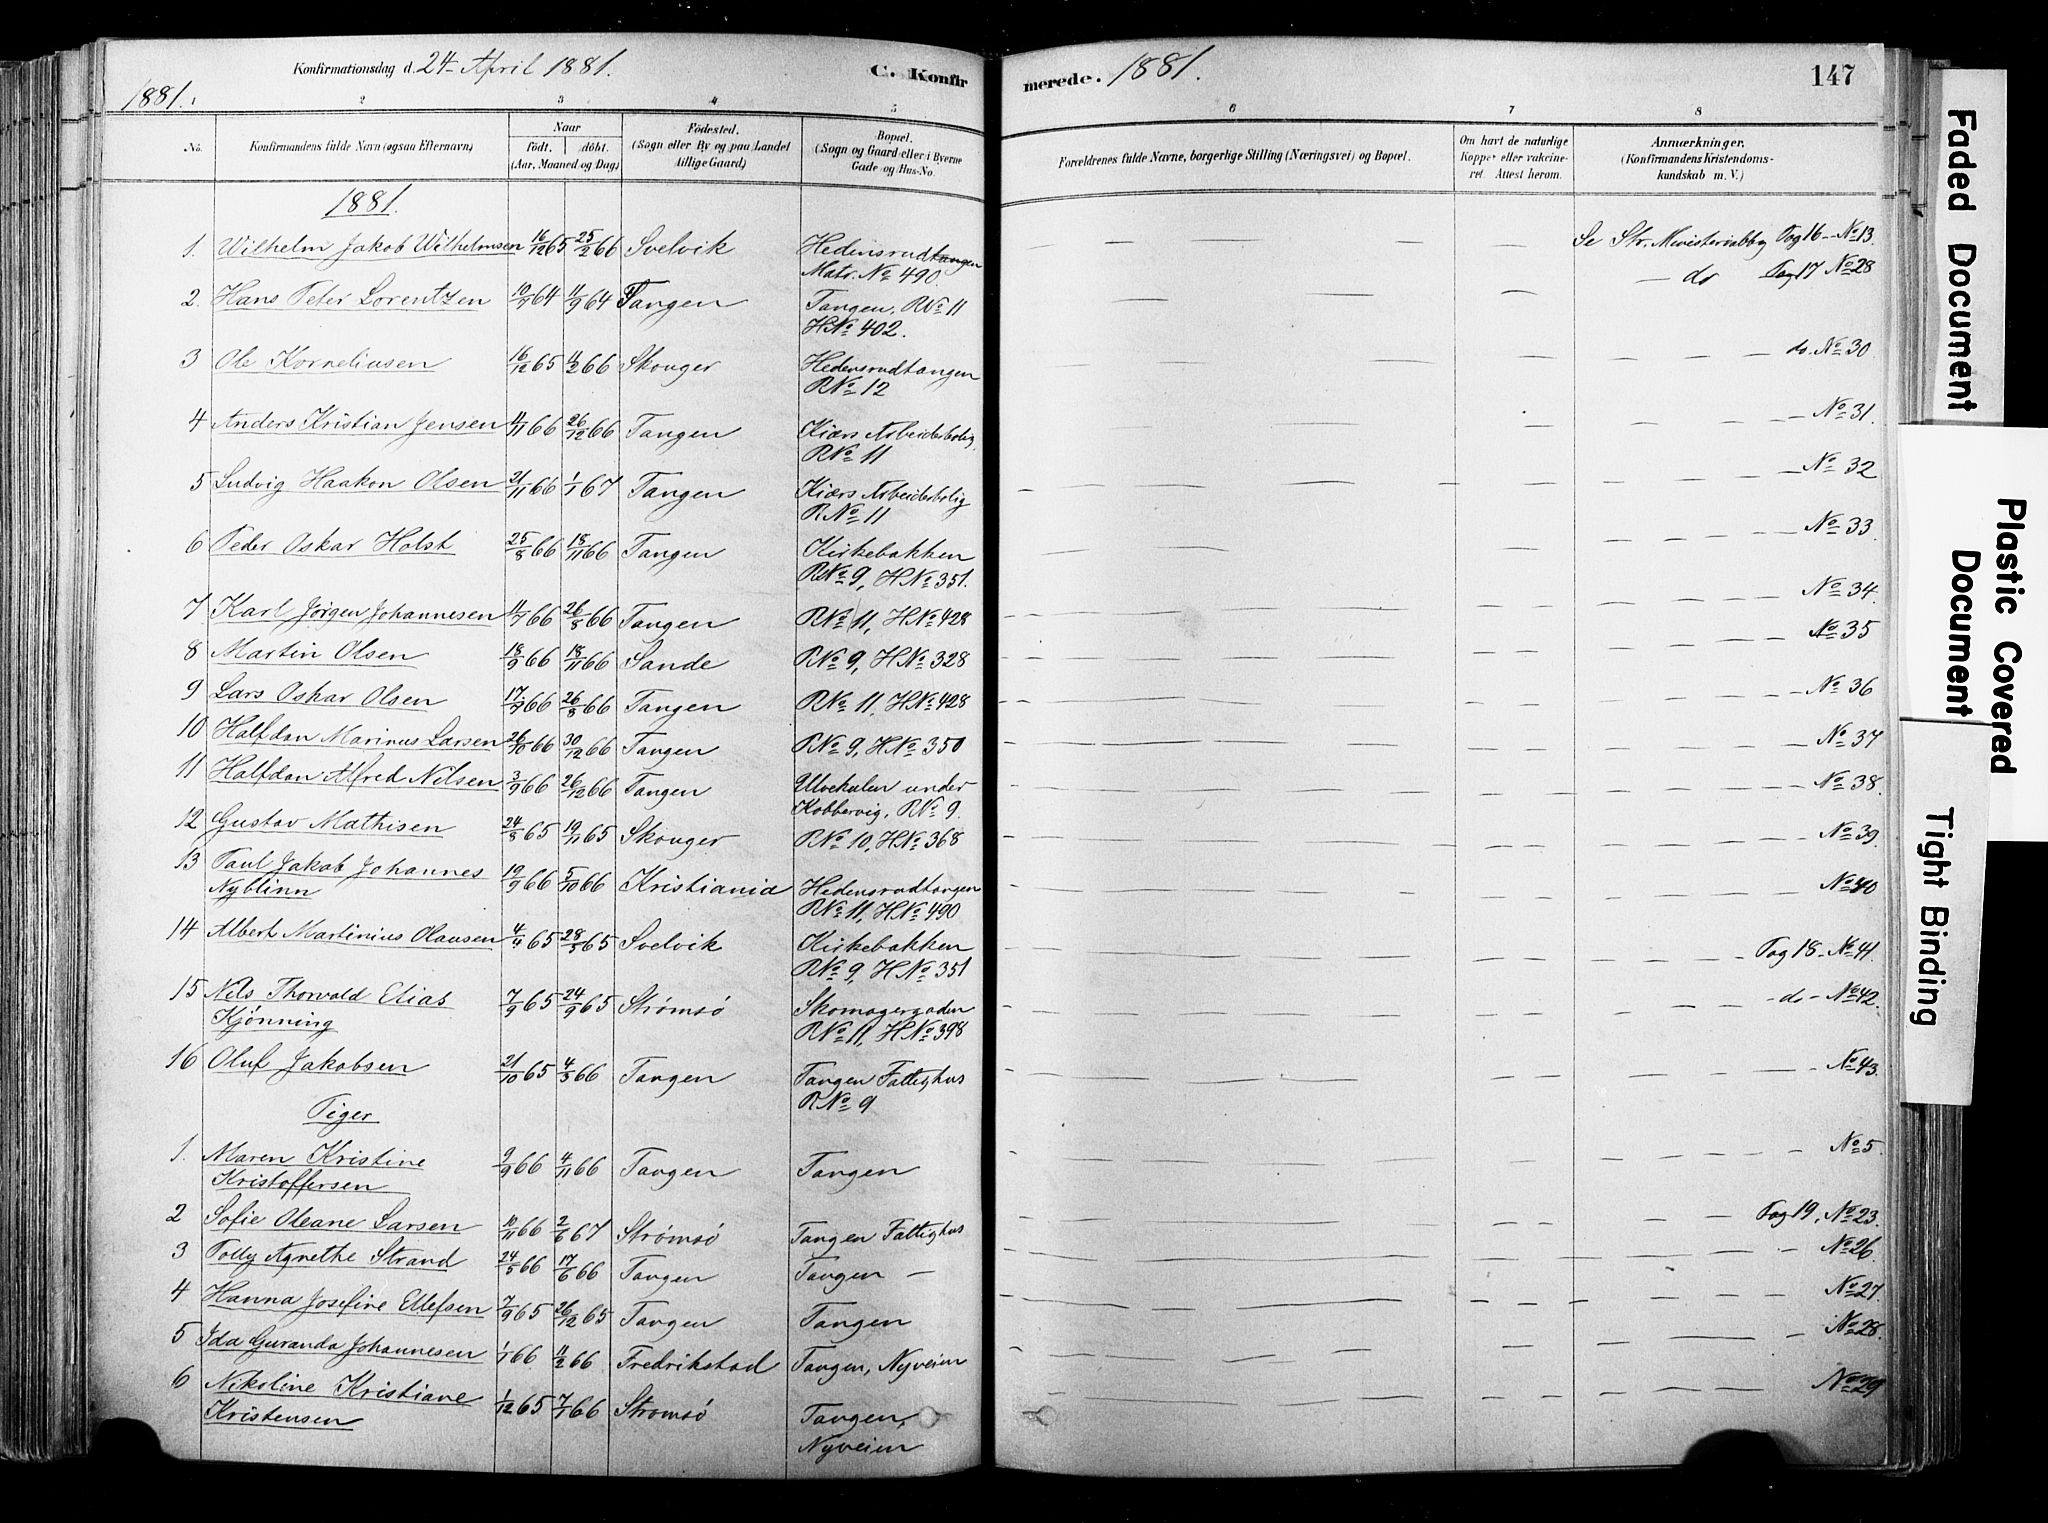 Konfirmationsdag d. 24 April 1881. C. Konfir
merede. 1881. 147
1881. 1 2 3 4 5 6 7 8
No. Konfirmandens fulde Navn (ogsaa Efternavn) Naar født. døbt. (Aar, Maaned og Dag) Födested. (Sogn eller By og paa Landet tillige Gaard) Bopæl. (Sogn og Gaard eller i Byerne Gade og Hus-No.
Forældrenes fulde Navne, borgerlige Stilling (Næringsvei) og Bopæl. Om havt de naturlige Kopper eller vakcineret. Attest herom. Anmærkninger. (Konfirmandens Kristendomskundskab m. V.)
1881.
1. Wilhelm Jakob Wilhelmsen 16/12 65 25/2 66 Svelvik Hedensrudtangen Matr. No 490. Se Str. Ministerialbog Pag 16 - No 13.
2. Hans Peter Lorentzen 10/7 64 11/9 64 Tangen Tangen, RNo 11 HNo 402. — do Pag 17 No 28
3 Ole Korneliusen 16/12 65 11/2 66 Skouger Hedensrudtangen RNo 12 do. No 30
4 Anders Kristian Jensen 11/11 66 26/12 66 Tangen Kiærs Arbeiderbolig, RNo 11 — No 31.
5 Ludvig Haakon Olsen 21/11 66 1/1 67 Tangen Kiærs Arbeiderbolig RNo 11 — No 32
6 Peder Oskar Holst 25/8 66 18/11 66 Tangen Kirkebakken RNo 9, HNo 351. No 33.
7 Karl Jørgen Johannesen 11/7 66 26/8 66 Tangen RNo 11, HNo 428 No 34.
8 Martin Olsen 18/9 66 18/11 66 Sande RNo 9, HNo 328 No 35
9 Lars Oskar Olsen 17/7 66 26/8 66 Tangen RNo 11, HNo 428 — No 36
10 Halfdan Marinus Larsen 26/10 66 30/12 66 Tangen RNo 9, HNo 350 — No 37
11 Halfdan Alfred Nilsen 3/9 66 26/12 66 Tangen Ulvekulen under Kobbervig, RNo 9. — No 38.
12 Gustav Mathisen 24/8 65 19/11 65 Skouger RNo 10, HNo 368 — No 39.
13 Paul Jakob Johannes Nyblinn 19/9 66 5/10 66 Kristiania Hedensrudtangen RNo 11, HNo 490 No 40
14 Albert Martinius Olausen 4/4 65 28/5 65 Svelvik Kirkebakken RNo 9, HNo 351 Pag 18 - No 41.
15 Nils Thorvald Elias Kjønning 7/9 65 24/9 65 Strømsø Skomagergaden RNo 11, HNo 398 - do - No 42.
16 Oluf Jakobsen 21/10 65 4/3 66 Tangen Tangen Fattighus RNo 9 - No 43.
Piger
1. Maren Kristine Kristoffersen 9/9 66 4/11 66 Tangen Tangen No 5.
2 Sofie Oleane Larsen 10/11 66 2/6 67 Strømsø Tangen Fattighus Pag 19, No 23.
3 Polly Agnethe Strand 24/5 66 17/6 66 Tangen Tangen — No 26.
4 Hanna Josefine Ellefsen 7/9 65 26/12 65 Tangen Tangen No 27.
5 Ida Guranda Johannesen 1/1 66 11/2 66 Fredrikstad Tangen, Nyveien No 28.
6 Nikoline Kristiane Kristensen 1/12 65 7/1 66 Strømsø Tangen, Nyveien No 29
Faded Document
Plastic Covered Document
Tight Binding